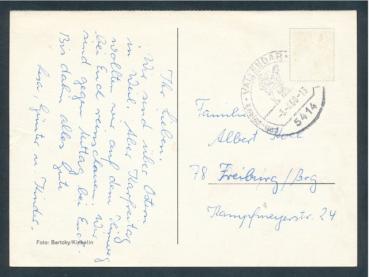 Ihr Lieben.
Wir sind über Ostern
in Weil. Am Karfreitag
wollten wir auf dem Hinweg
bei Euch reinschauen. Wir
sind gegen Mittag bei Euch.
Bis dahin alles Gute
Günter u. Kinder.
Foto: Bertchy/Kirbelin
VALLENDAR
5414
Familie
Albert
78 Freiburg/Brg
Kampfmeyerstr. 24